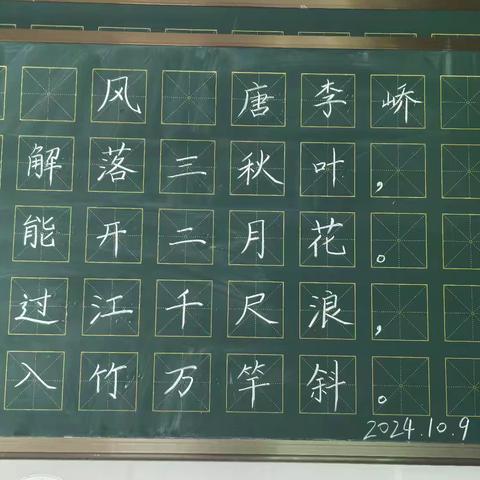 风 唐李峤
解落三秋叶，
能开二月花。
过江千尺浪，
入竹万竿斜。
2024.10.9